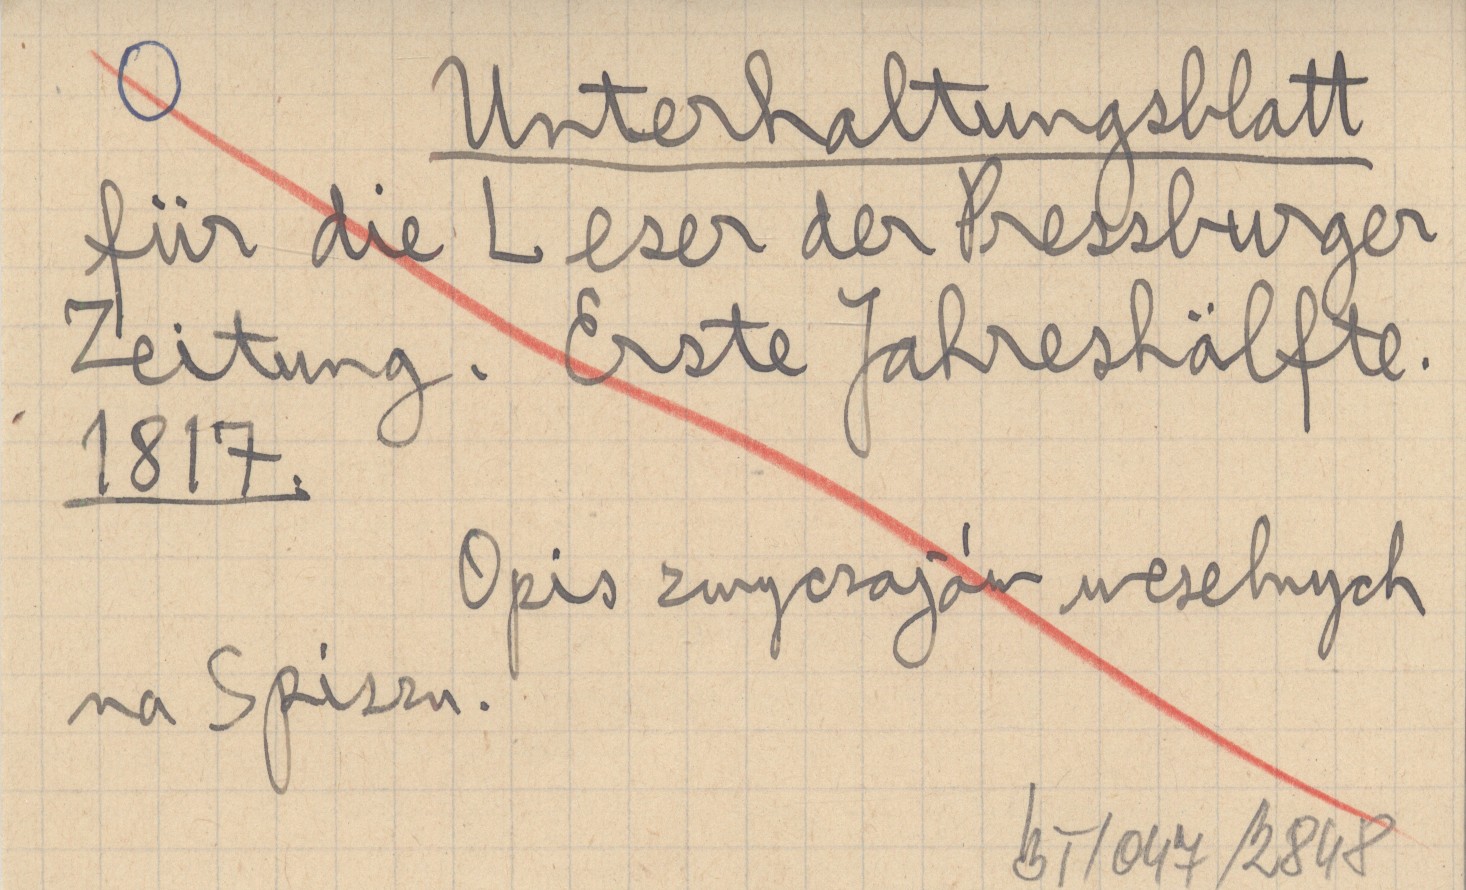 Unterhaltungsblatt
für die Leser der Pressburger
Zeitung. Erste Jahreshälfte.
1817.
Opis zwyczajów weselnych
na Spiszu.
BT/047/2848